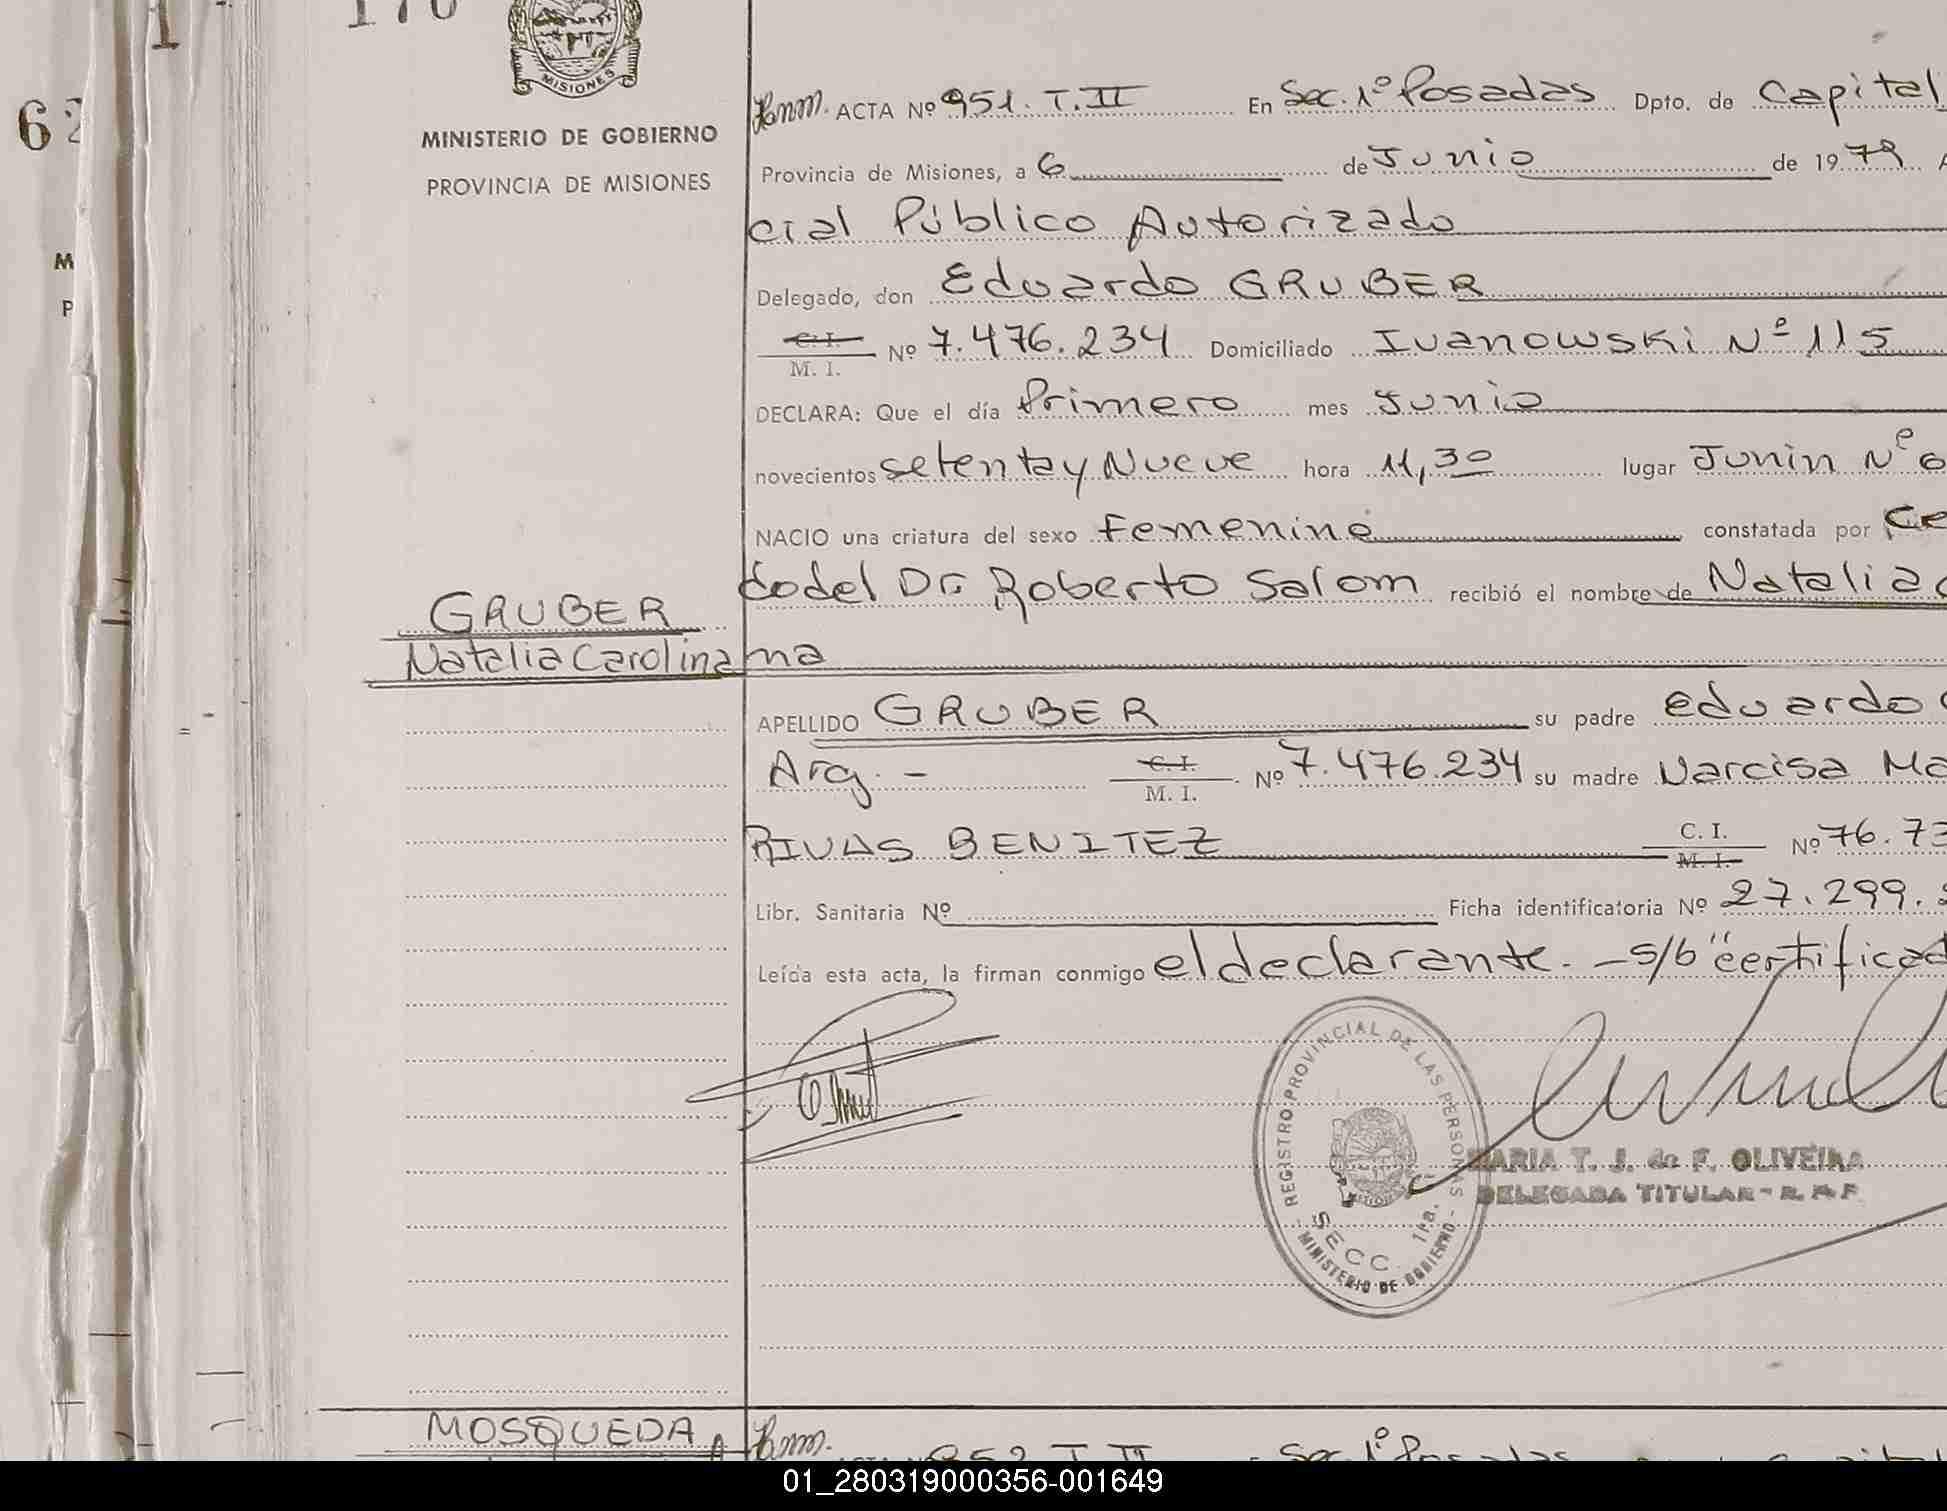 170
MISIONES
MINISTERIO DE GOBIERNO
PROVINCIA DE MISIONES
ACTA Nº 951. T. II En Sec. 1º Posadas Dpto. de Capital
Provincia de Misiones, a 6 de Junio de 1979
cial Público Autorizado
Delegado, don Eduardo GRUBER
C. I.
M. I. Nº 7.476.234 Domiciliado Ivanowski Nº 115
DECLARA: Que el día Primero mes Junio
novecientos setenta y Nueve hora 11,30 lugar Junin Nº 6
NACIO una criatura del sexo femenino constatada por Ce
do del Dr. Roberto Salom recibió el nombre de Natalia C
GRUBER
Natalia Carolina
na
APELLIDO GRUBER su padre Eduardo G
Arg. - C. I.
M. I. Nº 7.476.234 su madre Narcisa Ma
RIVAS BENITEZ C. I.
M. I. Nº 76.73
Libr. Sanitaria Nº Ficha identificatoria Nº 27.299.
Leída esta acta, la firman conmigo el declarante. - s/b "certificad
REGISTRO PROVINCIAL DE LAS PERSONAS
SECC. 1ra.
MINISTERIO DE GOBIERNO
MARIA T. J. de F. OLIVEIRA
DELEGADA TITULAR - R. P. P.
MOSQUEDA
952 T. II Sec. 1º Posadas
62
M
P
1
01_280319000356-001649